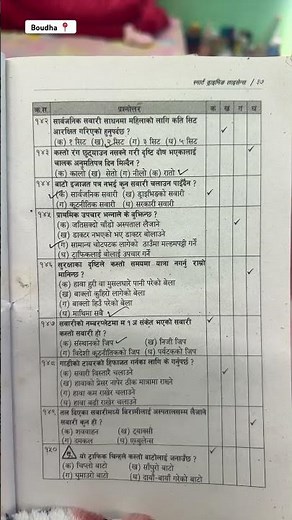 Boudha 📍
स्मार्ट ड्राइभिङ लाइसेन्स / २७
क्र.स प्रश्नोत्तर क ख ग घ
१४२ सार्वजनिक सवारी साधनमा महिलाको लागि कति सिट
आरक्षित गरिएको हुनुपर्दछ ?
(क) १ सिट (ख) २ सिट (ग) ३ सिट (घ) ५ सिट
१४३ कस्तो रंग छुट्याउन नसक्ने गरी दृष्टि दोष भएकालाई
चालक अनुमतिपत्र दिन मिल्दैन ?
(क) कालो (ख) सेतो (ग) नीलो (घ) रातो
१४४ बाटो इजाजत पत्र नभई कुन सवारी चलाउन पाईंदैन ?
(क) सार्वजनिक सवारी (ख) ड्राईभरको सवारी
(ग) कुटनीतिक सवारी (घ) सरकारी सवारी
१४५ प्राथमिक उपचार भन्नाले के बुझिन्छ ?
(क) जतिसक्दो चाँडो अस्पताल लैजाने
(ख) डाक्टर नभएको भए डाक्टर बोलाउने
(ग) सामान्य चोटपटक लागेको ठाउँमा मलमपट्टी गर्ने
(घ) ट्राफिकलाई बोलाई उपचार गर्ने
१४६ सुरक्षाका दृष्टिले कस्तो समयमा यात्रा नगर्नु राम्रो
मानिन्छ ?
(क) हावा हुरी वा मुसलधारे पानी परेको बेला
(ख) बाक्लो कुहिरो लागेको बेला
(ग) बाक्लो हिउँ परेको बेला
(घ) माथिमा सबै
१४७ सवारीको नम्बरप्लेटमा म १ ञ संकेत भएको सवारी
कस्तो सवारी हो ?
(क) संस्थानको जिप (ख) निजी जिप
(ग) विदेशी कुटनीतिकको जिप (घ) पर्यटकको जिप
१४८ गाडीको टायरको हिफाजत गर्नका लागि के गर्नुपर्छ ?
(क) सवारी विस्तारै चलाउने
(ख) हावाको प्रेसर नापेर ठीक मात्रामा राख्ने
(ग) हावा कम राखेर चलाउने
(घ) हावा बढी राखेर चलाउने
१४९ तल दिएका सवारीमध्ये बिरामीलाई अस्पतालसम्म लैजाने
सवारी कुन हो ?
(क) शववाहन (ख) ट्याक्सी
(ग) दमकल (घ) एम्बुलेन्स
१५० यो ट्राफिक चिन्हले कस्तो बाटोलाई जनाउँछ ?
(क) चिप्लो बाटो (ख) साँघुरो बाटो
(ग) घुमाउरो बाटो (घ) दायाँ-बायाँ गरेको बाटो